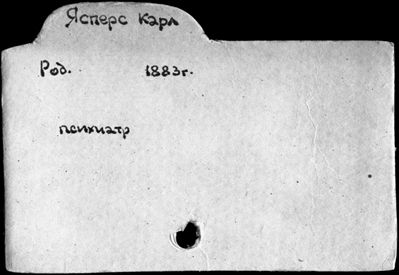 Ясперс Карл
Род. 1883г.
психиатр